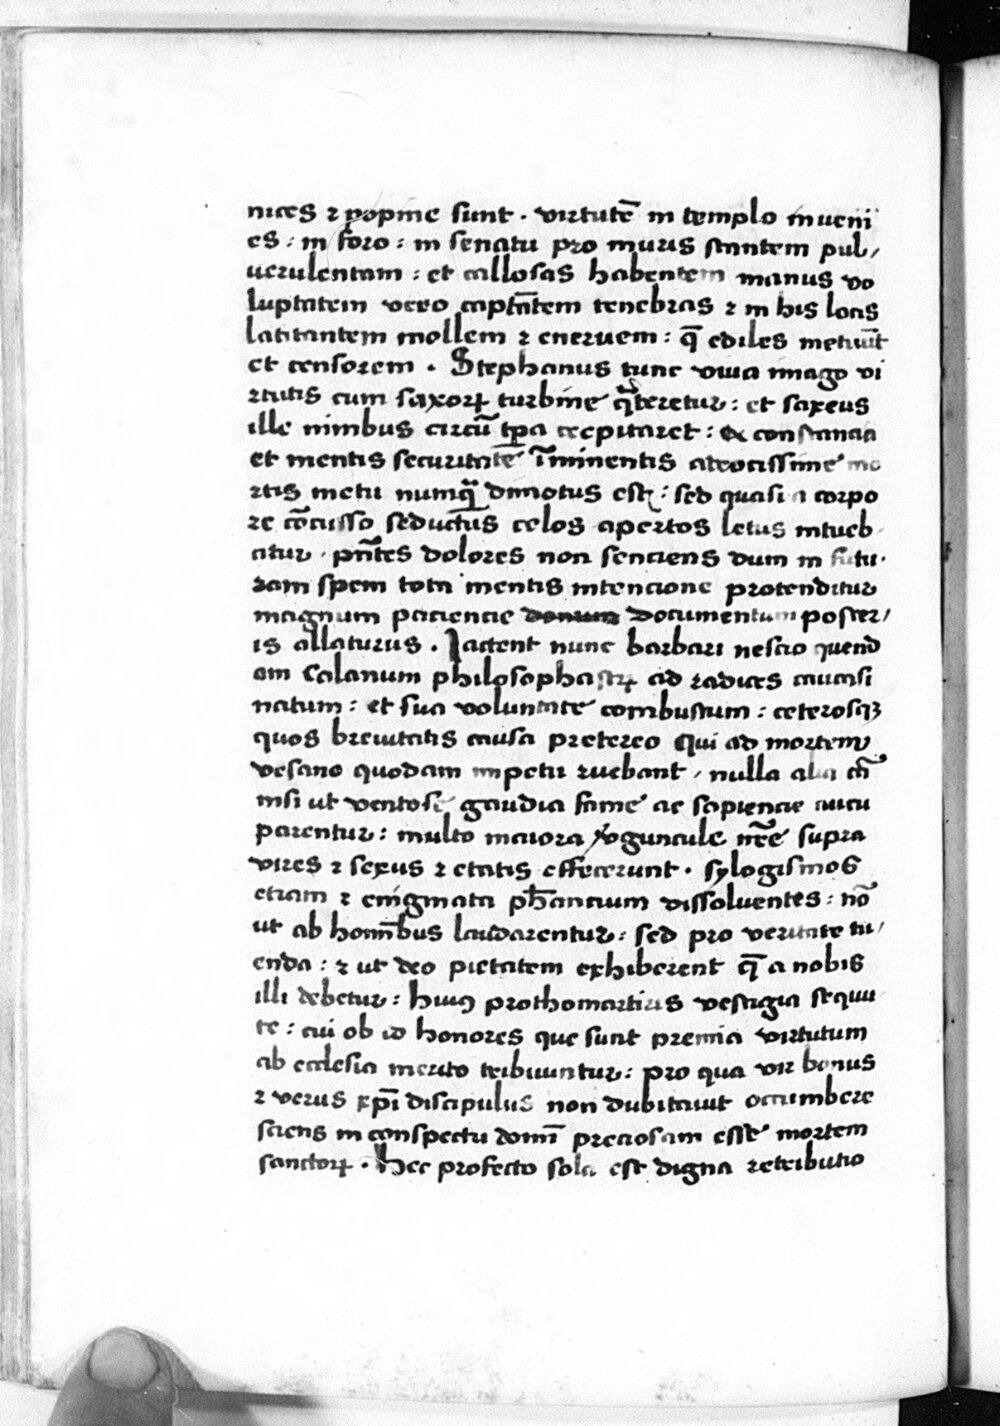 nices ⁊ popine sunt . virtutē in templo inueni
es : in foro : in senatu pro muris stantem pul/
uerulentam : et callosas habentem manus vo
luptatem vero captāntem tenebras ⁊ in his locis
latitantem mollem ⁊ eneruem : q̄ ediles metuūt
et censorem . Stephanus tunc viua imago vi
rtutis cum saxoꝝ turbine q̄teretur : et saxeus
ille nimbus circū tp̄a crepitaret : ex constancia
et mentis securitatē īminentis atrocissime mo
rtis metu numq̄ dimotus est : sed quasi a corpo
re cōcusso seductus celos apertos letus intueb
atur . pn̄tes dolores non senciens dum in futu
ram spem tota mentis intencione protenditur
magnum paciencie documentum poster/
is allaturus . Iactent nunc barbari nescio quend
am Calanum philosophastꝝ ad radices caucasi
natum : et sua voluntate combustum : ceterosqꝫ
quos breuitatis causa pretereo qui ad mortem
vesano quodam impetu ruebant / nulla alia cā
nisi ut ventose gaudia fame ac sapiencie aucu
parentur : multo maiora v̓guncule nr̄e supra
vires ⁊ sexus ⁊ etatis effecerunt . sylogismos
etiam ⁊ enigmata ph̄ancium dissoluentes : nō
ut ab homībus laudarentur : sed pro veritate tu/
enda : ⁊ ut deo pietatem exhiberent q̄ a nobis
illi debetur : huiꝰ prothomartiris vestigia sequu
te : cui ob id honores que sunt premia virtutum
ab ecclesia merito tribuuntur : pro qua vir bonus
⁊ verus xp̄i discipulus non dubitauit occumbere
sciens in conspectu domī preciosam esse mortem
sanctoꝝ . Hec profecto sola est digna retributio